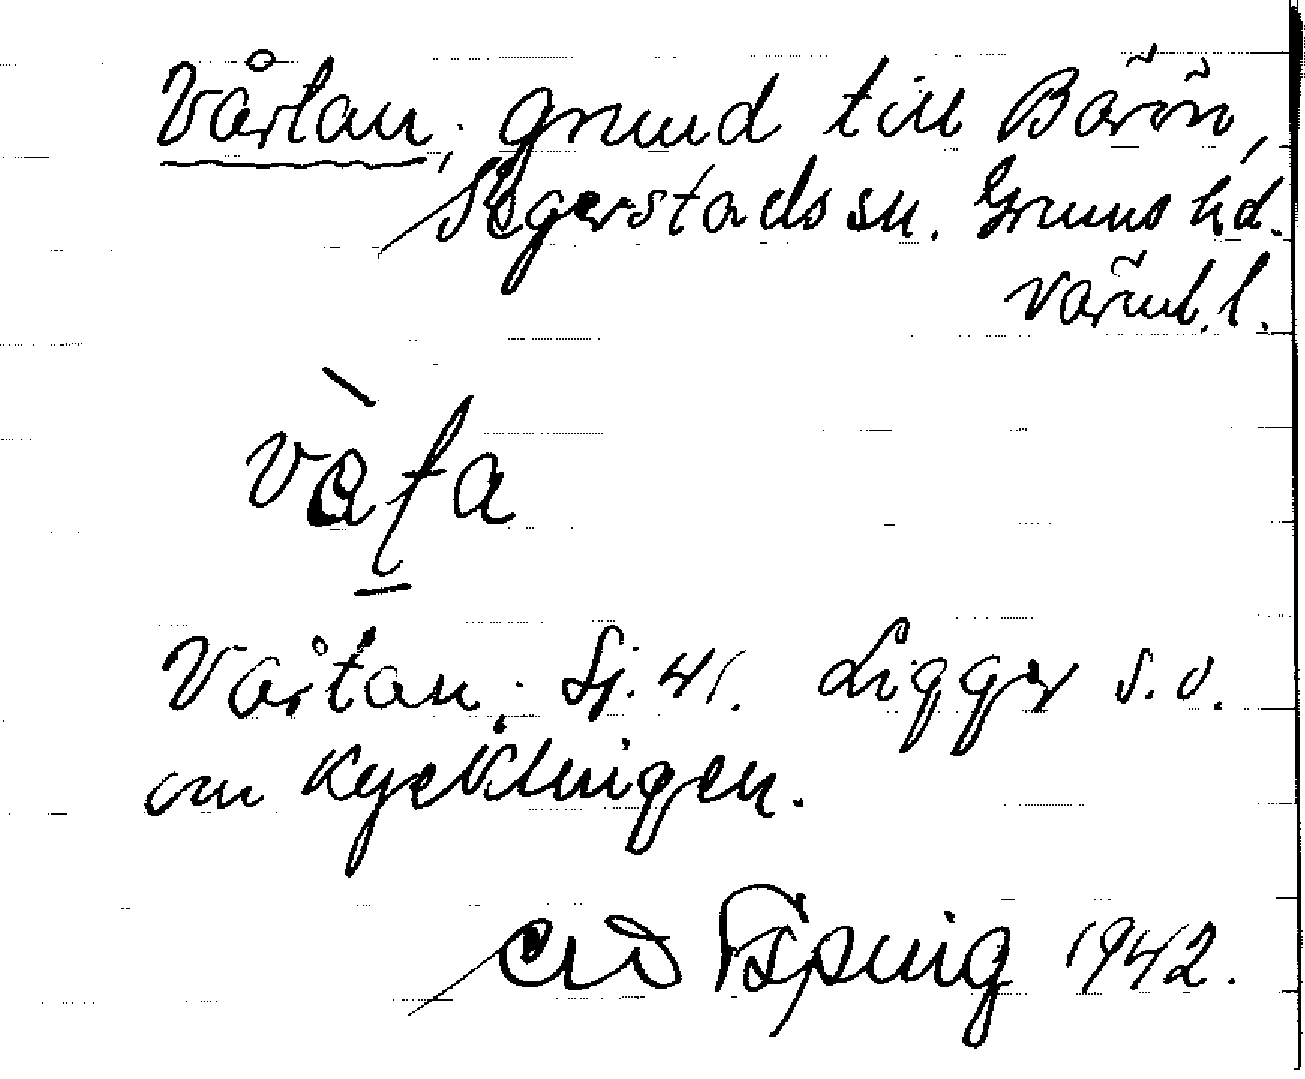 Vårtan, grund till Barön,
Segerstads sn. Grums hd.
Värml. l.
vàƭa
Vårtan. Sj. k. Ligger s.o.
om Kycklingen.
1942.